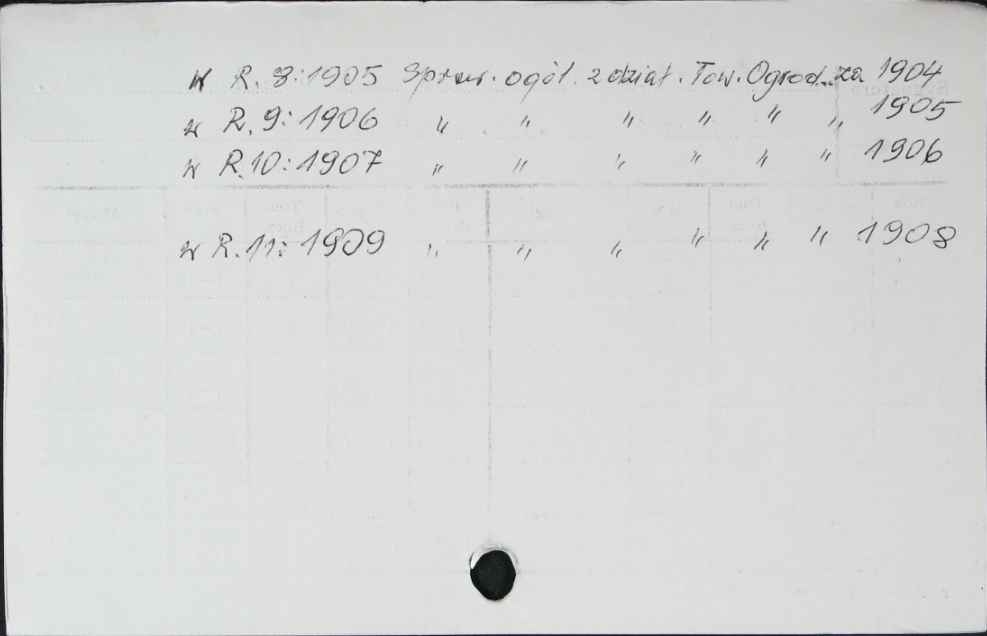 w R. 8:1905 Spraw. ogól. z dział. Tow. Ogrod. za 1904
w R. 9:1906 " " " " " " 1905
w R.10:1907 " " " " " " 1906
w R.11:1909 " " " " " " 1908